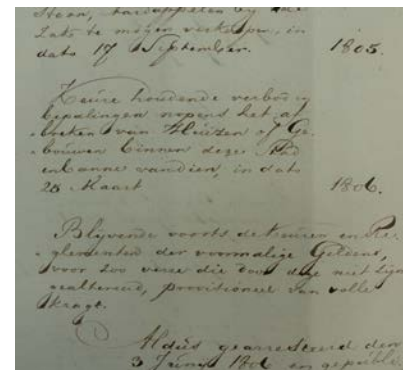 Steen, aardappelen by de
Zak te mogen verkoopen, in
dato 17 September. 1805.
Keure houdende verbod en
bepalingen nopens het af
breken van Huizen of Ge-
bouwen binnen deze Stad
en banne van dien, in dato
28 Maart 1806.
Blyvende voorts de Keuren en Re-
glementen der voormalige
voor zoo verre die door deze niet zyn
gealtereerd, provisioneel van volle
kragt.
Aldus gearresteerd den
3 Juny 1806 en gepubli